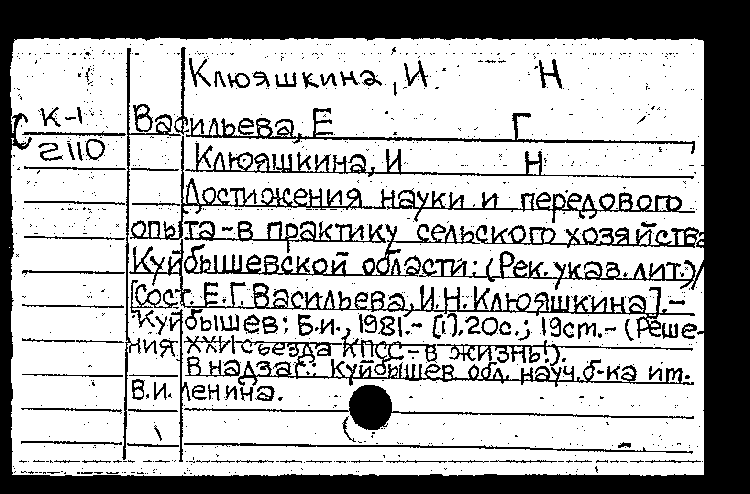 Клюяшкина, И Н
К-1 Васильева, Е Г
2110 Клюяшкина, И Н
Достижения науки и передового
опыта-в практику сельского хозяйства
Куйбышевской области: (Рек. указ. лит.)/
[Сост. Е.Г. Васильева, И.Н. Клюяшкина].-
Куйбышев: Б.и., 1981.- [1], 20с.; 19см.- (Реше-
ния XXVI съезда КПСС-в жизнь!).
В надзаг.: Куйбышев обл. науч. б-ка им.
В.И. Ленина.